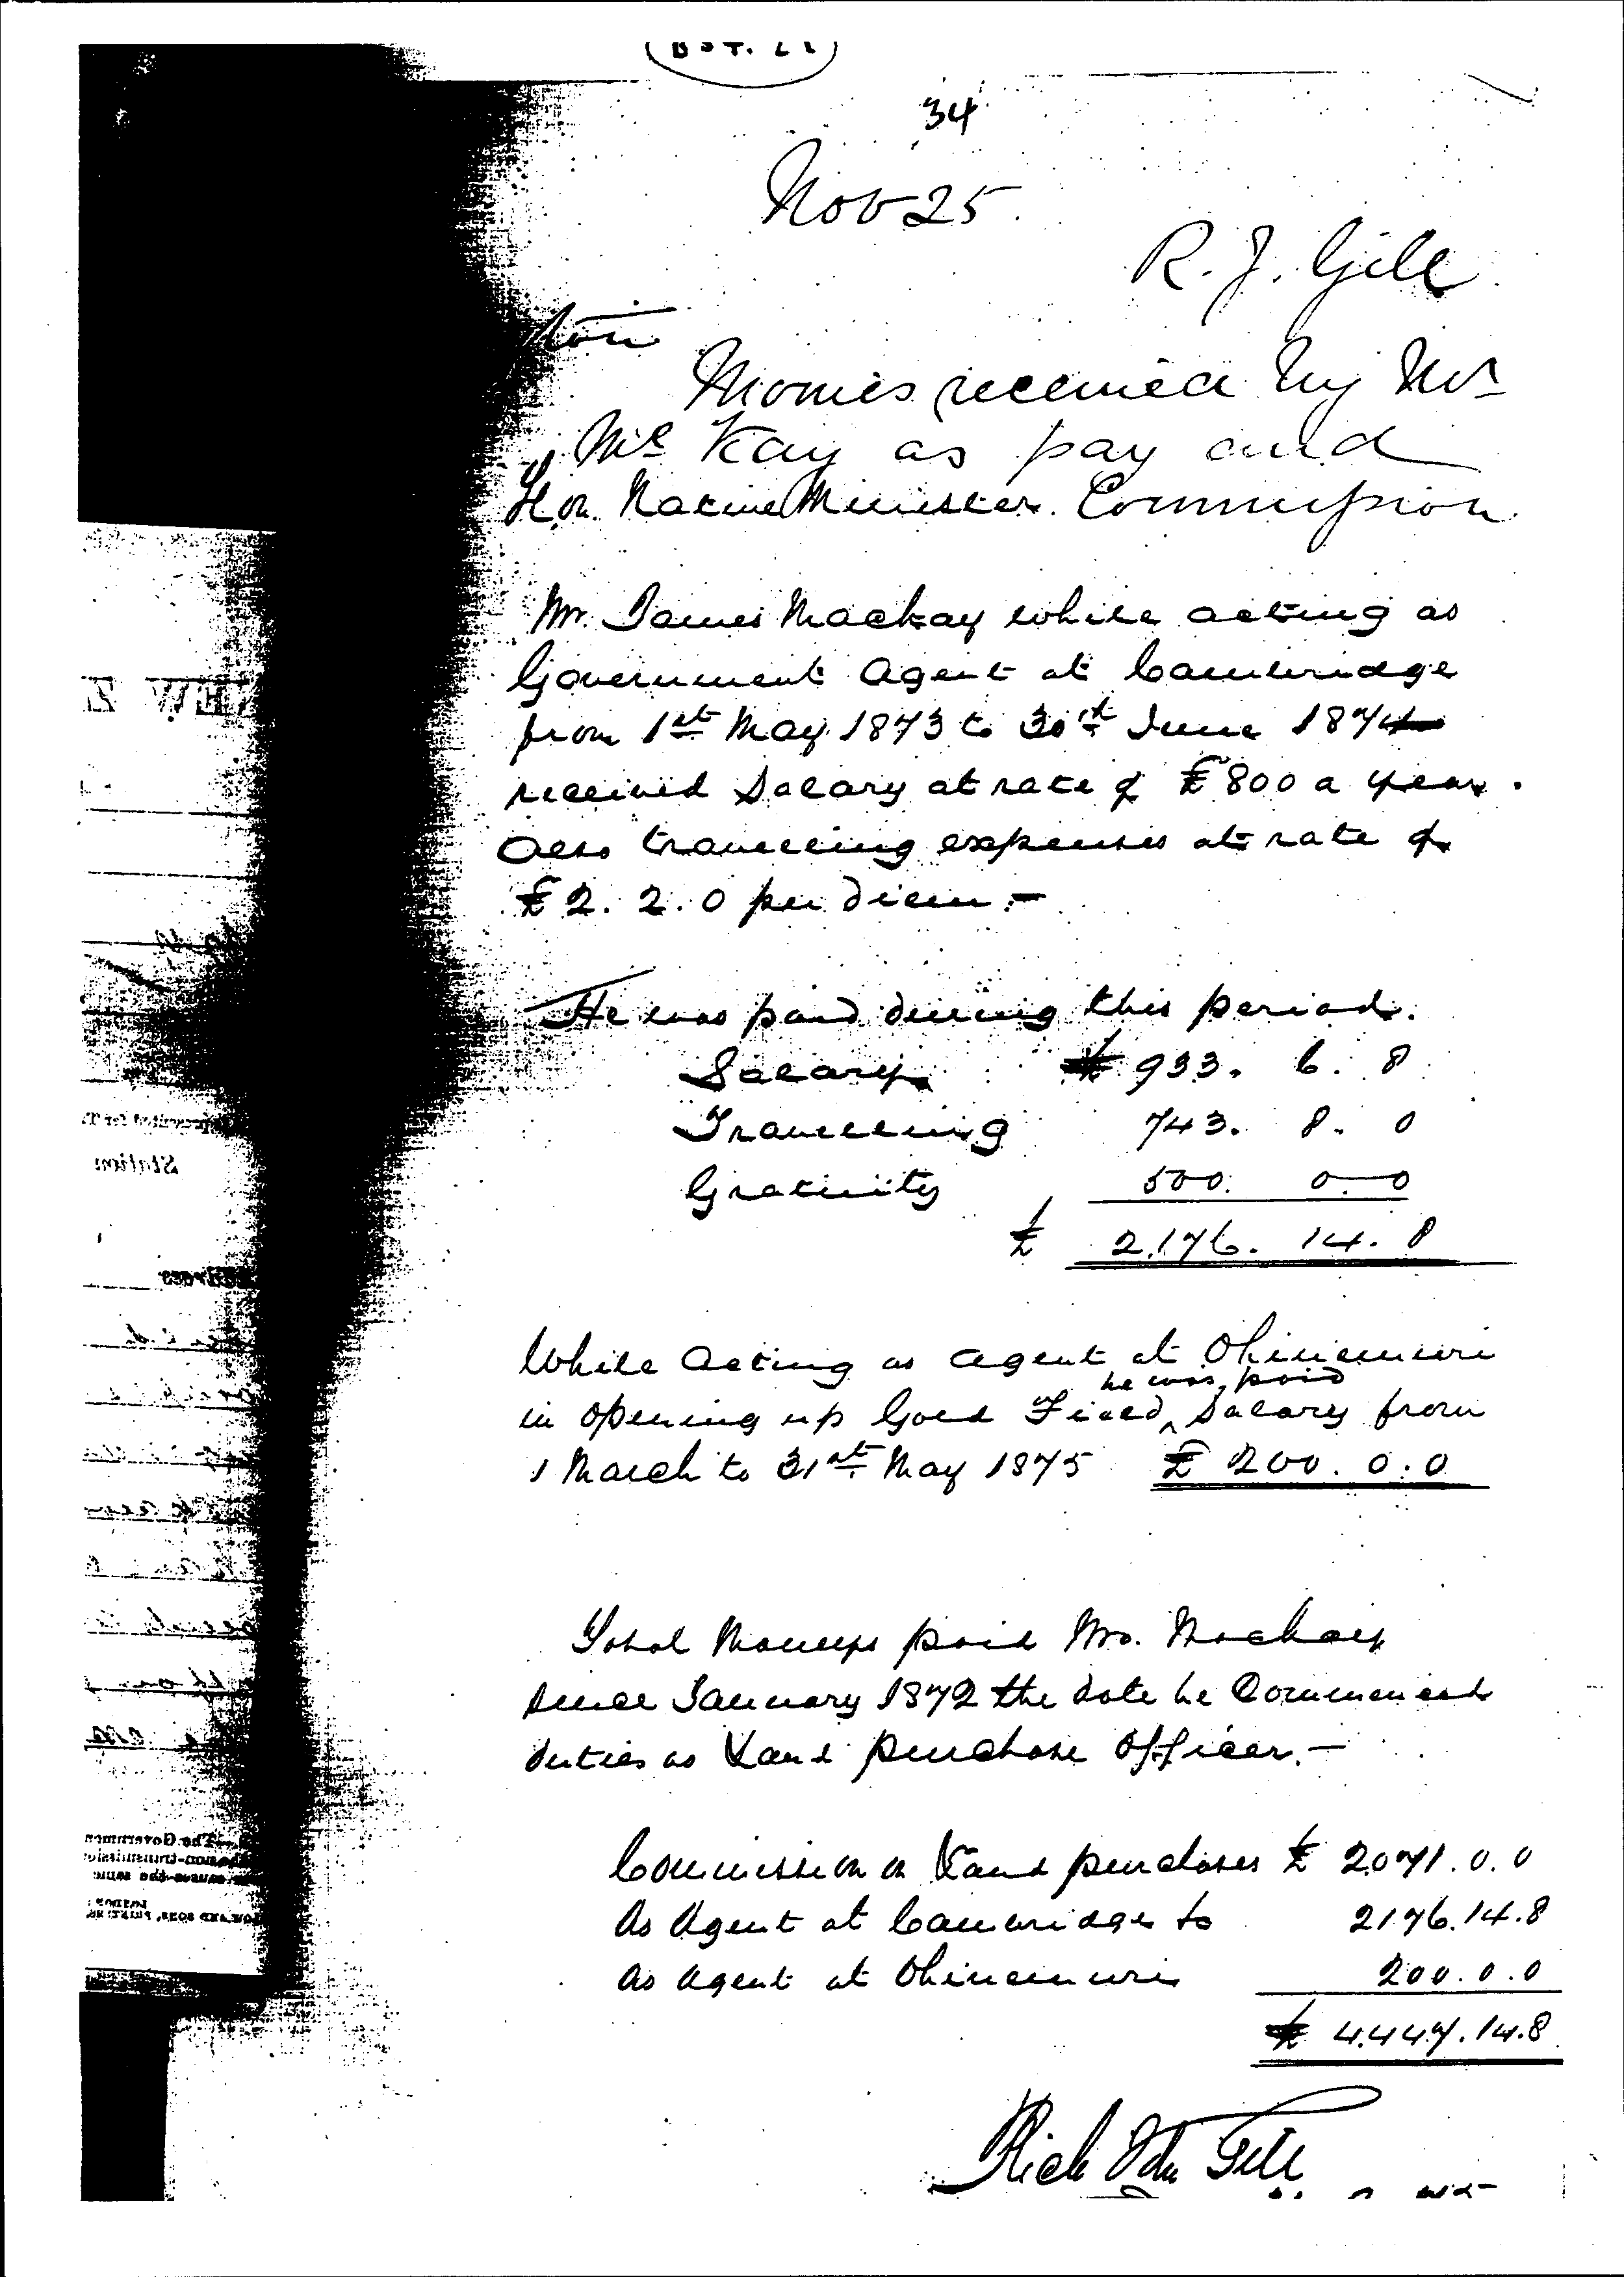 34
Nov 25
R. J. Gill
Monies received by Mr
Mc Kay as pay and
Hon. Native Minister. Commission
Mr. James Mackay while acting as
Government Agent at Cambridge
from 1st May 1873 to 30th June 1874
received Salary at rate of £800 a year.
Also travelling expenses at rate of
£2. 2. 0 per diem. -
He was paid during this period.
Salary £ 933. 6. 8
Travelling 743. 8. 0
Gratuity 500. 0. 0
£ 2,176. 14. 8
While Acting as agent at Ohinemuri
he was paid
in opening up Gold Field ^ Salary from
1 March to 31st May 1875 £ 200. 0. 0
Total Moneys paid Mr. Mackay
since January 1872 the date he Commenced
duties as Land purchase Officer. -
Commission on Land purchases £ 2071. 0. 0
As Agent at Cambridge to 2176. 14. 8
As Agent at Ohinemuri 200. 0. 0
£ 4,447. 14. 8
Rich Jn Gill
Station
The Governmen